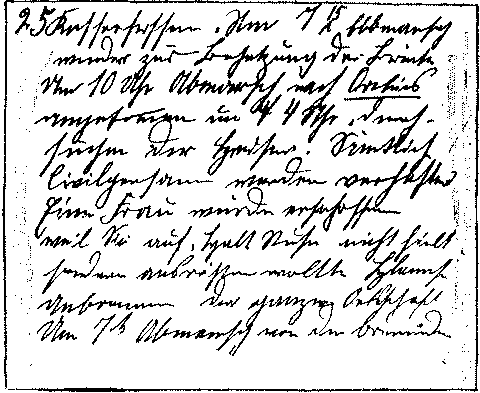 25 Kaffeefassen. Um 7 15 Abmarsch
wieder zur Besetzung der Brücke
Um 10 Uhr Abmarsch nach
angekommen um 4 Uhr. Durch-
suchen der Häuser. Sämtlich
Civilpersonen werden verhaftet
Eine Frau wurde erschossen
weil Sie auf Halt Rufen nicht hielt
sondern ausreißen wollte
Anbrennen der ganzen Ortschaft
Um 7 h Abmarsch von der